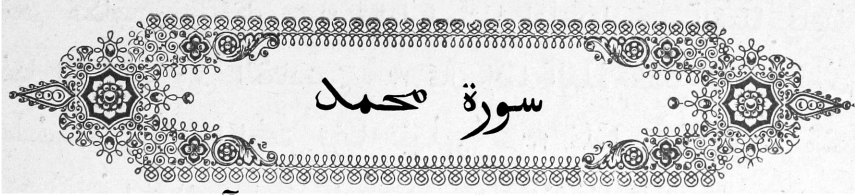 سورة محمد